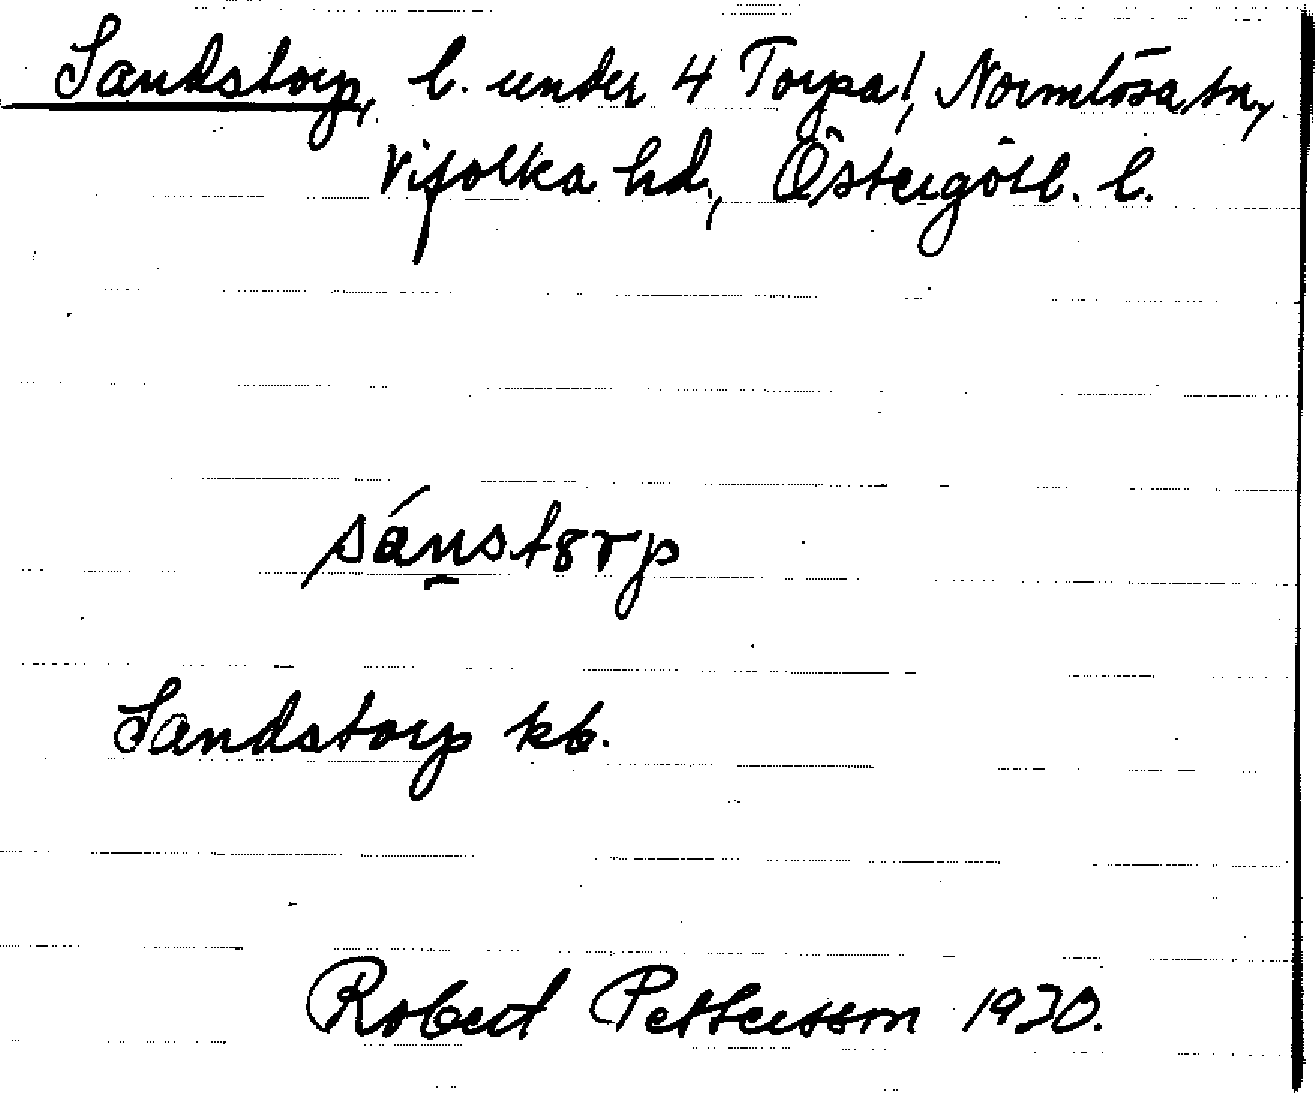 Sandstorp, l. under 4 Torpa!, Normlösa sn,
Vifolka hd, Östergötl. l.
sánstorp
Sandstorp kb.
Robert Pettersson 1920.